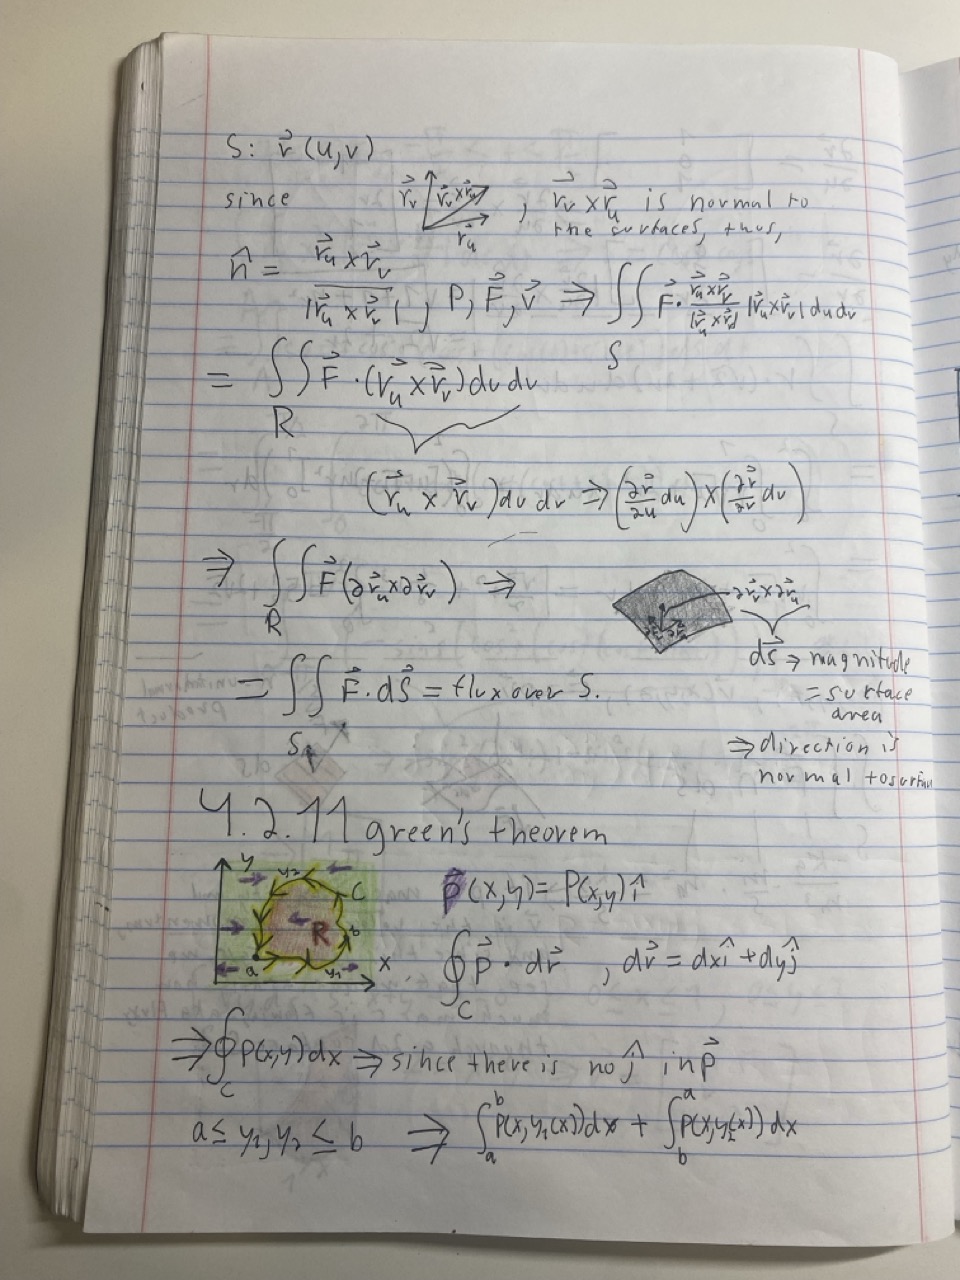 S: r⃗ (u,v)
since r⃗ᵥ r⃗ᵥ×r⃗ᵤ r⃗ᵤ , r⃗ᵥ × r⃗ᵤ is normal to
the surfaces, thus,
n̂ = (r⃗ᵤ × r⃗ᵥ)/|r⃗ᵤ × r⃗ᵥ| , P, F⃗, v⃗ ⇒ ∬_S F⃗ · (r⃗ᵤ×r⃗ᵥ)/|r⃗ᵤ×r⃗ᵥ| |r⃗ᵤ×r⃗ᵥ| du dv
= ∬_R F⃗ · (r⃗ᵤ × r⃗ᵥ) du dv
(r⃗ᵤ × r⃗ᵥ) du dv ⇒ (∂r⃗/∂u du) × (∂r⃗/∂v dv)
⇒ ∬_R F⃗ (∂r⃗ᵤ × ∂r⃗ᵥ) ⇒ ∂r⃗ᵥ × ∂r⃗ᵤ
dS⃗ ⇒ magnitude
= ∬_S F⃗ · dS⃗ = flux over S.
= surface
area
⇒ direction is
normal to surfac
4.2.11 green's theorem
y y₂ C R b a y₁ x
P⃗ (x,y) = P(x,y) î
∮_C P⃗ · dr⃗ , dr⃗ = dx î + dy ĵ
⇒ ∮_C P(x,y) dx ⇒ since there is no ĵ in P⃗
a ≤ y₁, y₂ ≤ b ⇒ ∫_a^b P(x, y₁(x)) dx + ∫_b^a P(x, y₂(x)) dx